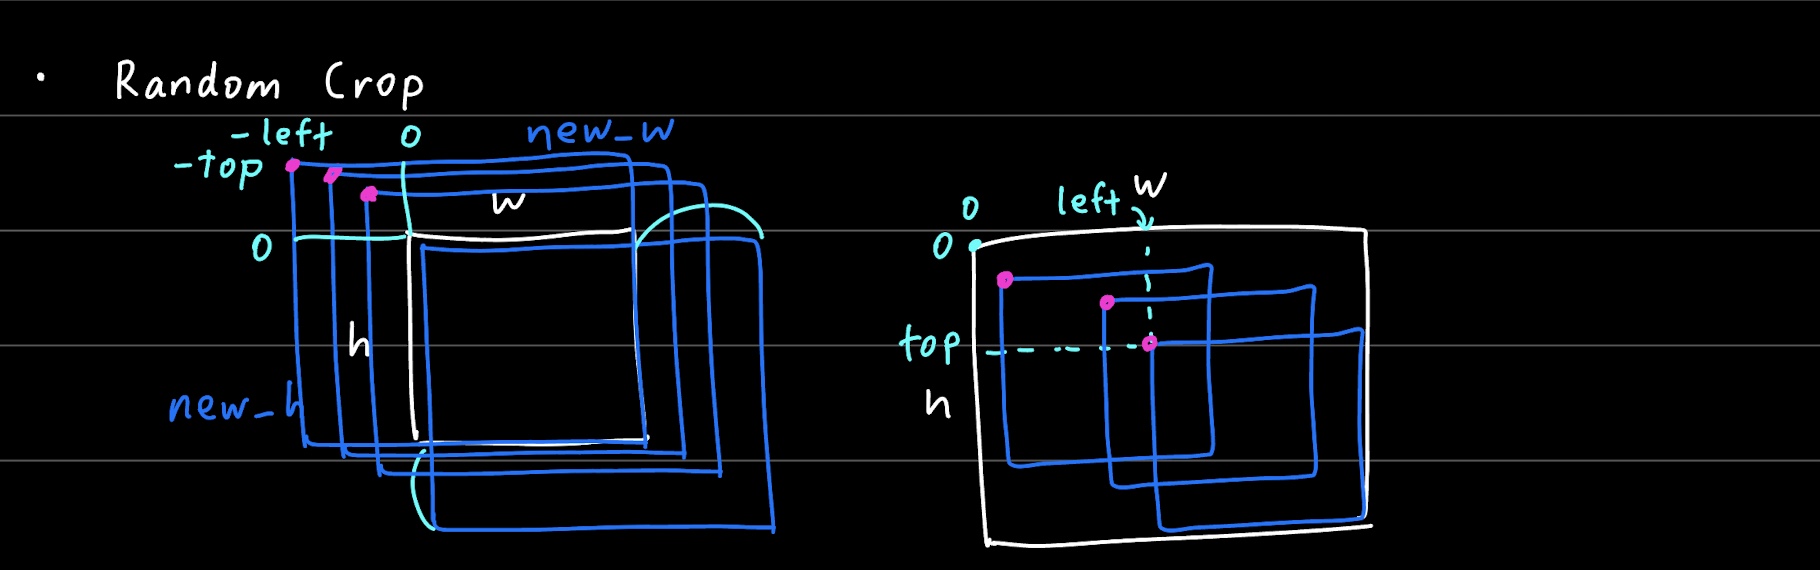 • Random Crop
-left 0 new_w
-top
w
0
h
new_h
0 left w
0
top
h